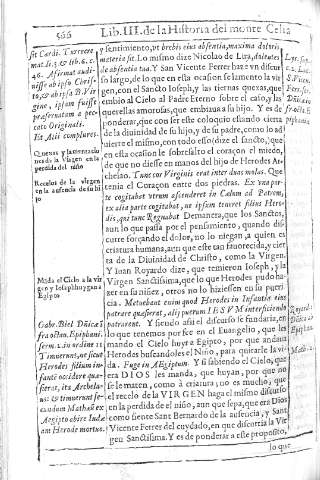 566 Lib. III. de la Historia del monte Celia
sit Card. Turrecre
mat. li. 3. & lib. 6. c.
46. Afirmat audi-
uisse ab ipso Christo
, & ab ipsa B. Vir
gine, ipsam fuisse
præseruatam a pec-
cato Originali.
Ita Acil complures.
Quexas y lamentacio
nes de la Virgen en la
perdida del niño
Recelos de la virgen
en la ausencia de su hi
jo
Māda el Cielo a la vir
gen y Ioseph huyga a
Egipto
Gabr. Biel Dñica I
fra octau. Epiphani.
serm. 1. in ordine 11
Timuerunt, ne sicut
Herodes filium in-
fanti occidere quæ-
sierat, ita Archela-
us: & timuerunt se-
cundum Mathæ ex
Aegipto abire Iudæ
am Herode mortuo.
y sentimiento, vt brebis eius absentia, maxima doloris
materia sit. Lo mismo dize Nicolao de Lyra, doluites
de absentia tua. Y San Vicente Ferrer haze vn discur
so largo, de lo que en esta ocasion se lamento la vir
gen, con el Sancto Ioseph, y las tiernas quexas, que
embio al Cielo al Padre Eterno sobre el caso, y las
querellas amorosas, que embiaua a su hijo. Y es de
ponderar, que con ser este coloquio estando cierta
de la diuinidad de su hijo, y de su padre, como lo ad
uierte el mismo, con todo esso (dize el sancto) que
en esta ocasion le sobresalto el coraçon el miedo,
de que no diesse en manos del hijo de Herodes Ar-
chelao. Tunc cor Virginis erat inter duas molas. Que
tenia el Coraçon entre dos piedras. Ex vna par-
te cogitabat vtrum ascenderet in Cælum ad Patrem,
ex alia parte cogitabat, ne ipsum teneret filius Hero-
dis, qui tunc Regnabat Demanera, que los Sanctos,
aun lo que passa por el pensamiento, quando dis-
curre forçando el dolor, no lo niegan, a quien es
criatura humana, aun que este tan fauorecida, y cier
ta de la Diuinidad de Christo, como la Virgen.
Y Iuan Royardo dize, que temieron Ioseph, y la
Virgen Sanctissima, que lo que Herodes pudo ha-
zer en su niñez, otros no lo hiziessen en su puericia
cia. Metuebant enim quod Herodes in Infantia eius
patrare quæsierat, alij puerum IESVM interficiendo
patrarent. Y siendo assi el discurso se fundaria, en
lo que tenemos por fee en el Euangelio, que les
mando el Cielo huyr a Egipto, por que andaua
Herodes buscando el Niño, para quitarle la vi-
da. Fuge in Ægiptum. Y si sabiendo el Cielo, que
era DIOS les manda, que huyan, por que no
se le maten, como à criatura; no es mucho, que
el recelo de la VIRGEN haga el mismo discurso
en la perdida de el niño, aun que sepa, que era Dios
como siente Sant Bernardo de la ausencia, y Sant
Vicente Ferrer del cuydado, en que discurria la Vir
gen Sanctissima. Y es de ponderar a este proposito,
lo que
Lyra sup.
S. Vicen.
Ferr.
Dñica in
Epiphania.
Royard:
Dñica I
Epiphan.
Math. 2.